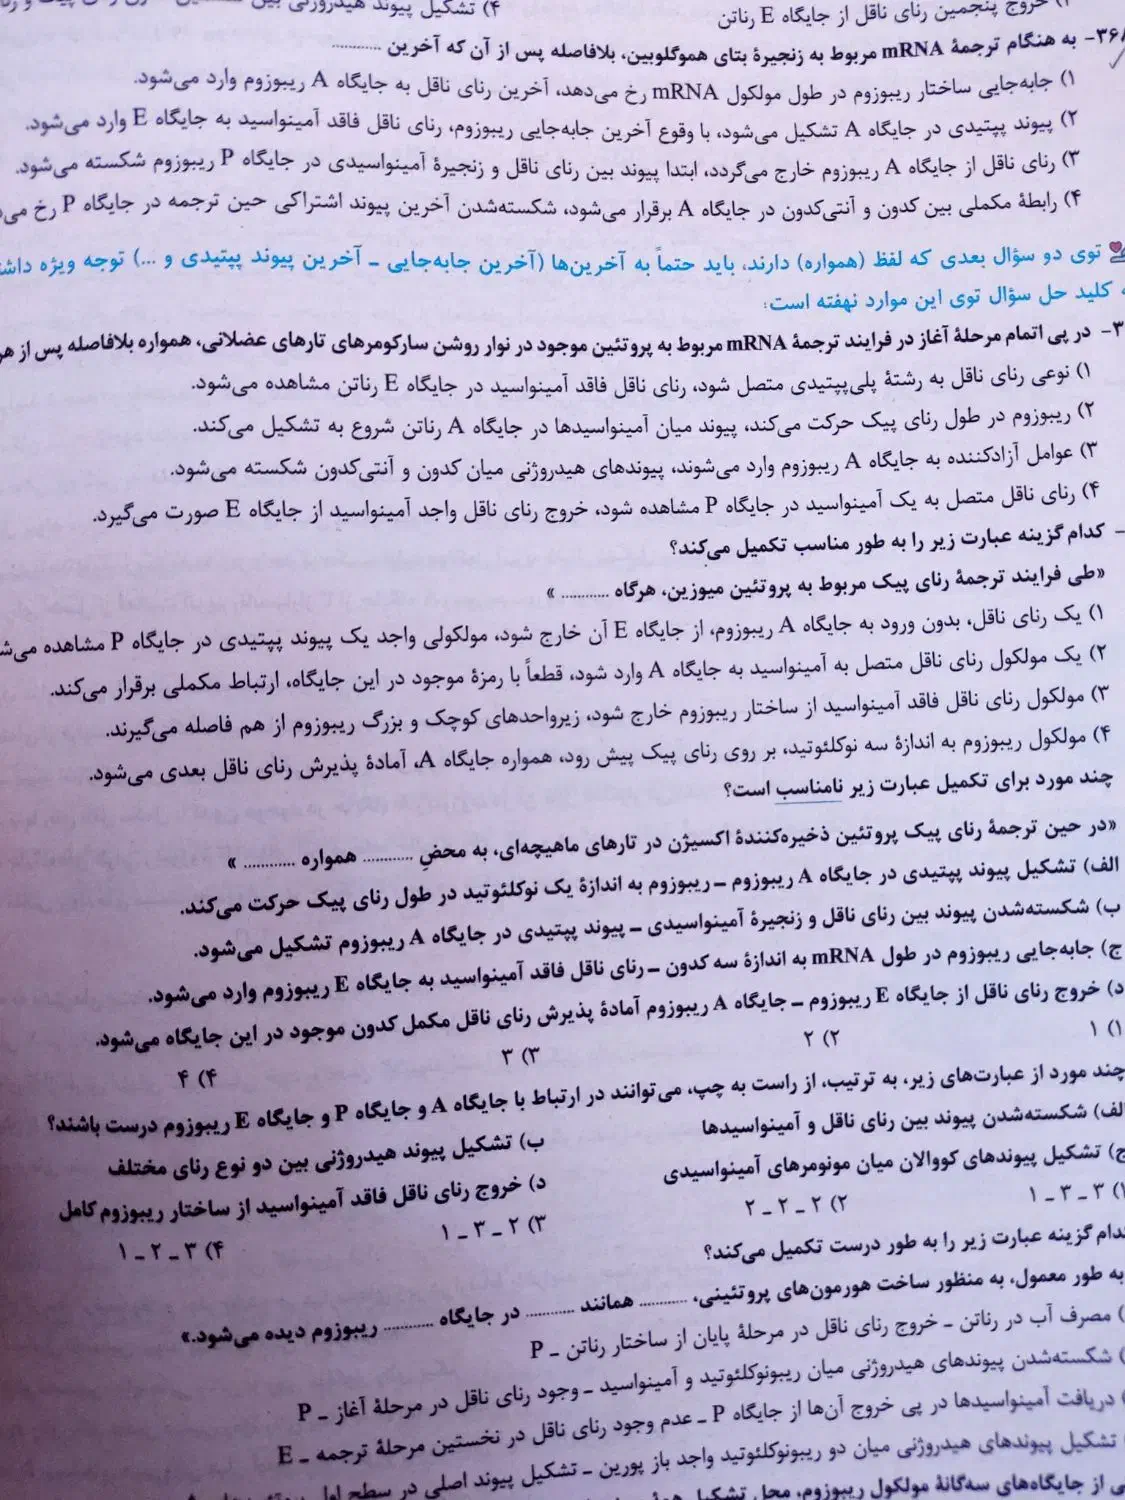 ۴) تشکیل پیوند هیدروژنی بین
خروج پنجمین رنای ناقل از جایگاه E رناتن
۳۶۸- به هنگام ترجمهٔ mRNA مربوط به زنجیرهٔ بتای هموگلوبین، بلافاصله پس از آن که آخرین ............
۱) جابه‌جایی ساختار ریبوزوم در طول مولکول mRNA رخ می‌دهد، آخرین رنای ناقل به جایگاه A ریبوزوم وارد می‌شود.
۲) پیوند پپتیدی در جایگاه A تشکیل می‌شود، با وقوع آخرین جابه‌جایی ریبوزوم، رنای ناقل فاقد آمینواسید به جایگاه E وارد می‌شود.
۳) رنای ناقل از جایگاه A ریبوزوم خارج می‌گردد، ابتدا پیوند بین رنای ناقل و زنجیرهٔ آمینواسیدی در جایگاه P ریبوزوم شکسته می‌شود.
۴) رابطهٔ مکملی بین کدون و آنتی‌کدون در جایگاه A برقرار می‌شود، شکسته‌شدن آخرین پیوند اشتراکی حین ترجمه در جایگاه P رخ
توی دو سؤال بعدی که لفظ (همواره) دارند، باید حتماً به آخرین‌ها (آخرین جابه‌جایی ـ آخرین پیوند پپتیدی و ...) توجه ویژه
کلید حل سؤال توی این موارد نهفته است:
در پی اتمام مرحلهٔ آغاز در فرایند ترجمهٔ mRNA مربوط به پروتئین موجود در نوار روشن سارکومرهای تارهای عضلانی، همواره بلافاصله پس از
۱) نوعی رنای ناقل به رشتهٔ پلی‌پپتیدی متصل شود، رنای ناقل فاقد آمینواسید در جایگاه E رناتن مشاهده می‌شود.
۲) ریبوزوم در طول رنای پیک حرکت می‌کند، پیوند میان آمینواسیدها در جایگاه A رناتن شروع به تشکیل می‌کند.
۳) عوامل آزادکننده به جایگاه A ریبوزوم وارد می‌شوند، پیوندهای هیدروژنی میان کدون و آنتی‌کدون شکسته می‌شود.
۴) رنای ناقل متصل به یک آمینواسید در جایگاه P مشاهده شود، خروج رنای ناقل واجد آمینواسید از جایگاه E صورت می‌گیرد.
- کدام گزینه عبارت زیر را به طور مناسب تکمیل می‌کند؟
«طی فرایند ترجمهٔ رنای پیک مربوط به پروتئین میوزین، هرگاه ............ »
۱) یک رنای ناقل، بدون ورود به جایگاه A ریبوزوم، از جایگاه E آن خارج شود، مولکولی واجد یک پیوند پپتیدی در جایگاه P مشاهده
۲) یک مولکول رنای ناقل متصل به آمینواسید به جایگاه A وارد شود، قطعاً با رمزهٔ موجود در این جایگاه، ارتباط مکملی برقرار می‌کند.
۳) مولکول رنای ناقل فاقد آمینواسید از ساختار ریبوزوم خارج شود، زیرواحدهای کوچک و بزرگ ریبوزوم از هم فاصله می‌گیرند.
۴) مولکول ریبوزوم به اندازهٔ سه نوکلئوتید، بر روی رنای پیک پیش رود، همواره جایگاه A، آمادهٔ پذیرش رنای ناقل بعدی می‌شود.
چند مورد برای تکمیل عبارت زیر نامناسب است؟
«در حین ترجمهٔ رنای پیک پروتئین ذخیره‌کنندهٔ اکسیژن در تارهای ماهیچه‌ای، به محضِ ............ همواره ............ »
الف) تشکیل پیوند پپتیدی در جایگاه A ریبوزوم ـ ریبوزوم به اندازهٔ یک نوکلئوتید در طول رنای پیک حرکت می‌کند.
ب) شکسته‌شدن پیوند بین رنای ناقل و زنجیرهٔ آمینواسیدی ـ پیوند پپتیدی در جایگاه A ریبوزوم تشکیل می‌شود.
ج) جابه‌جایی ریبوزوم در طول mRNA به اندازهٔ سه کدون ـ رنای ناقل فاقد آمینواسید به جایگاه E ریبوزوم وارد می‌شود.
د) خروج رنای ناقل از جایگاه E ریبوزوم ـ جایگاه A ریبوزوم آمادهٔ پذیرش رنای ناقل مکمل کدون موجود در این جایگاه می‌شود.
۱) ۱ ۲) ۲ ۳) ۳ ۴) ۴
چند مورد از عبارت‌های زیر، به ترتیب، از راست به چپ، می‌توانند در ارتباط با جایگاه A و جایگاه P و جایگاه E ریبوزوم درست باشند؟
الف) شکسته‌شدن پیوند بین رنای ناقل و آمینواسیدها ب) تشکیل پیوند هیدروژنی بین دو نوع رنای مختلف
ج) تشکیل پیوندهای کووالان میان مونومرهای آمینواسیدی د) خروج رنای ناقل فاقد آمینواسید از ساختار ریبوزوم کامل
۱) ۳ ـ ۳ ـ ۱ ۲) ۲ ـ ۲ ـ ۲ ۳) ۲ ـ ۳ ـ ۱ ۴) ۳ ـ ۲ ـ ۱
کدام گزینه عبارت زیر را به طور درست تکمیل می‌کند؟
به طور معمول، به منظور ساخت هورمون‌های پروتئینی، ............ همانند ............ در جایگاه ............ ریبوزوم دیده می‌شود.»
مصرف آب در رناتن ـ خروج رنای ناقل در مرحلهٔ پایان از ساختار رناتن ـ P
شکسته‌شدن پیوندهای هیدروژنی میان ریبونوکلئوتید و آمینواسید ـ وجود رنای ناقل در مرحلهٔ آغاز ـ P
دریافت آمینواسیدها در پی خروج آن‌ها از جایگاه P ـ عدم وجود رنای ناقل در نخستین مرحلهٔ ترجمه ـ E
تشکیل پیوندهای هیدروژنی میان دو ریبونوکلئوتید واجد باز پورین ـ تشکیل پیوند اصلی در سطح اول
از جایگاه‌های سه‌گانهٔ مولکول ریبوزوم، محل تشکیل